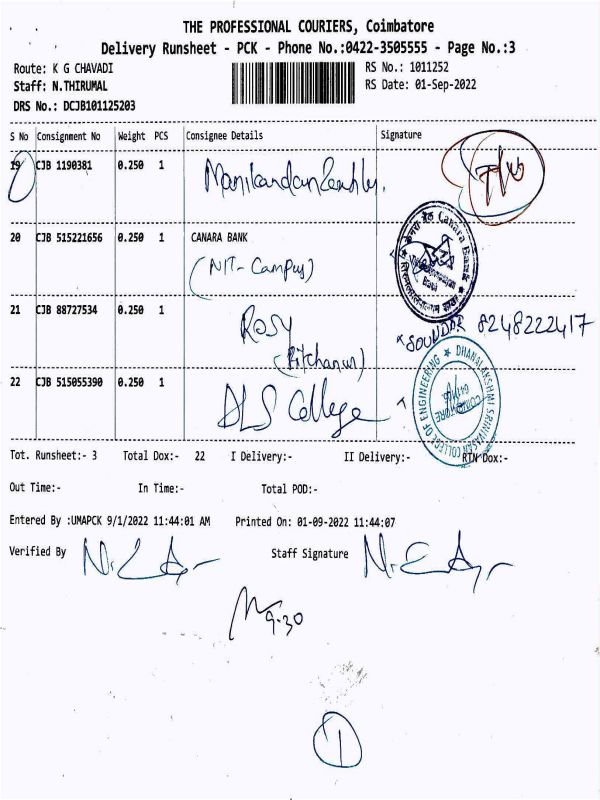 THE PROFESSIONAL COURIERS, Coimbatore
Delivery Runsheet - PCK - Phone No.:0422-3505555 - Page No.:3
Route: K G CHAVADI
RS No.: 1011252
Staff: N.THIRUMAL
RS Date: 01-Sep-2022
DRS No.: DCJB101125203
S No Consignment No Weight PCS Consignee Details Signature
19 CJB 1190381 0.250 1 Manikandan
20 CJB 515221656 0.250 1 CANARA BANK
(NIT-Campus)
Canara Bank
21 CJB 88727534 0.250 1 Rosy
(Pitchanur)
SOUNDAR 8248222417
22 CJB 515055390 0.250 1 DLS College
DHANALAKSHMI SRINIVASAN COLLEGE OF ENGINEERING
COIMBATORE
Tot. Runsheet:- 3 Total Dox:- 22 I Delivery:- II Delivery:- RTN Dox:-
Out Time:- In Time:- Total POD:-
Entered By :UMAPCK 9/1/2022 11:44:01 AM Printed On: 01-09-2022 11:44:07
Verified By Staff Signature
9.30
1